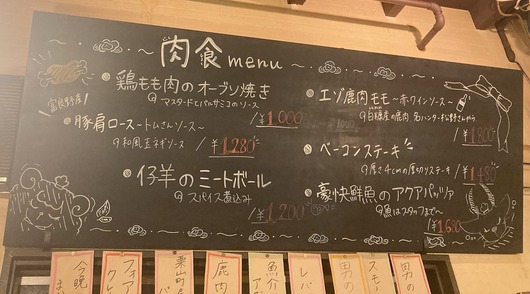 肉食menu
鶏もも肉のオーブン焼き
@マスタードとバルサミコのソース
/¥1,000
富良野産
豚肩ロース~トムさんソース~
@和風玉ネギソース
/¥1,280
仔羊のミートボール
@スパイス煮込み
/¥1,200
エゾ鹿肉モモ~赤ワインソース~
/¥1,800
ベーコンステーキ
@厚さ4cmの厚切りステーキ
/¥1,480
豪快鮮魚のアクアパッツァ
@魚はスタッフまで~
/¥1,680
今晩
フォア
クレ
栗山町
鹿肉
魚介
ア
レバ
男の
スモー
男の